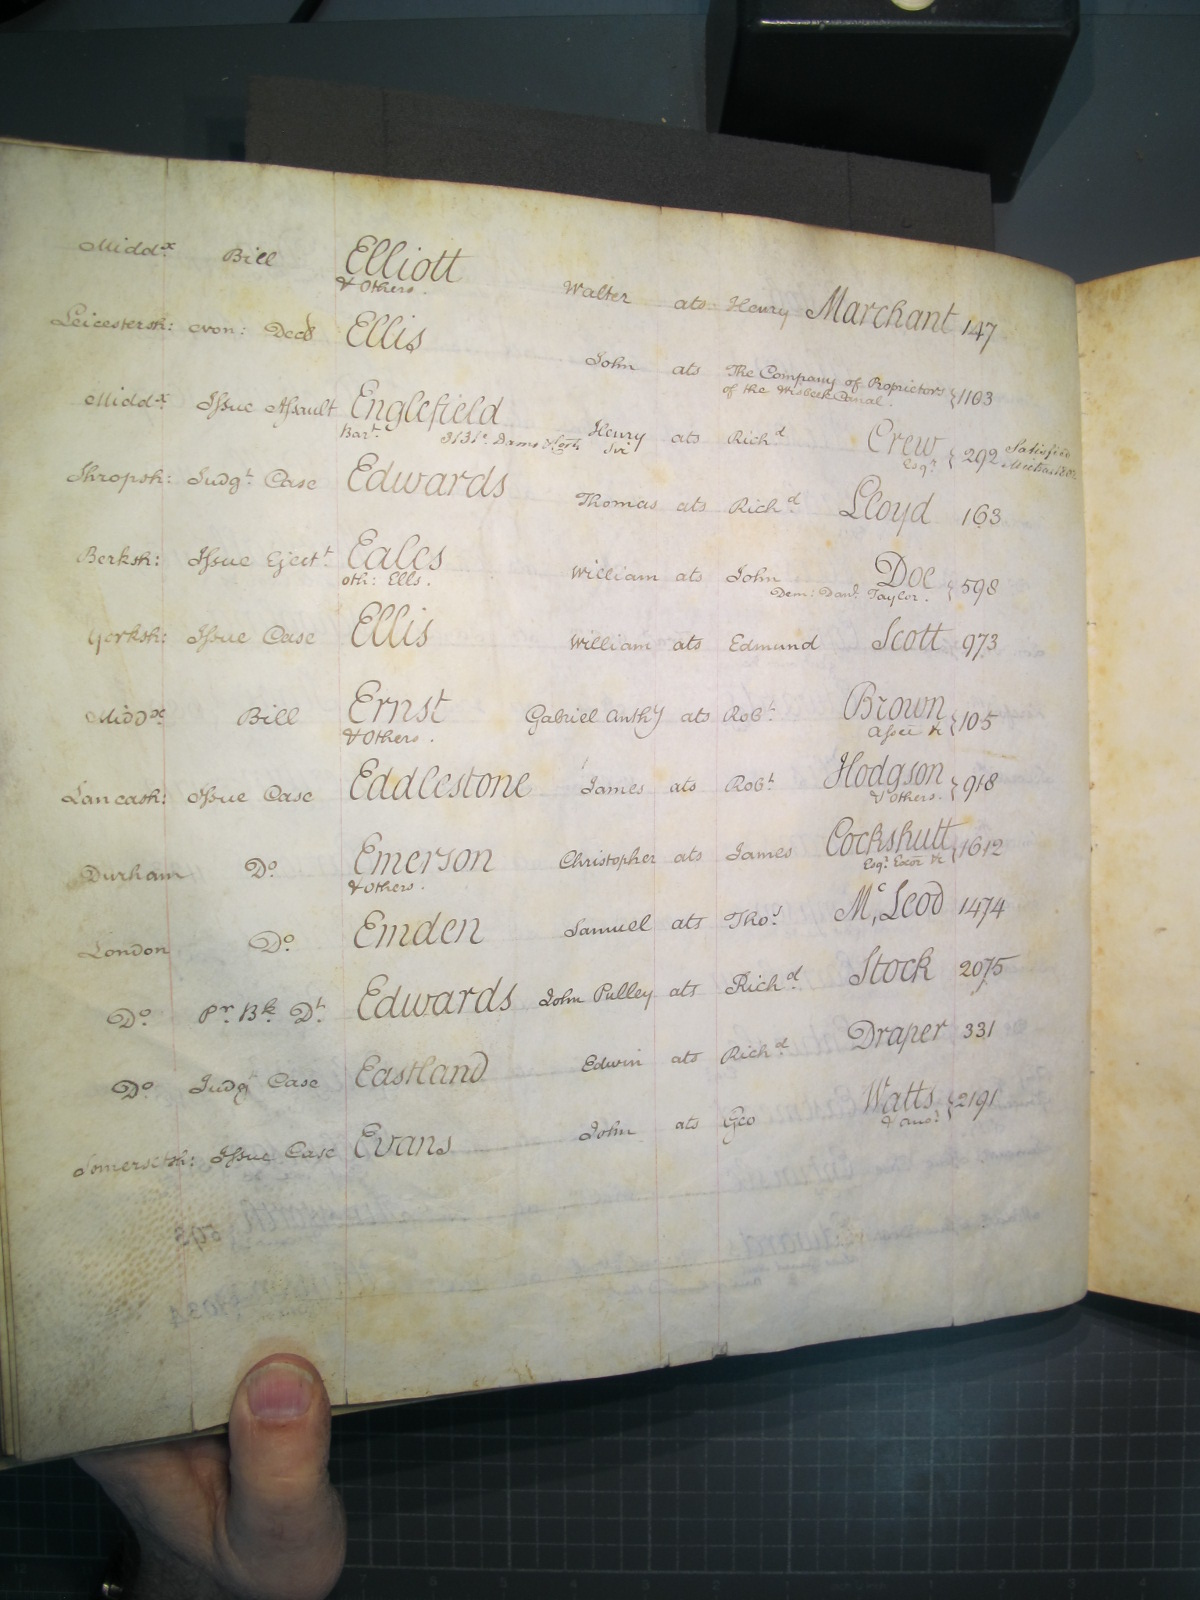 Midd.x Bill Elliott Walter ats Henry Marchant 147
& Others.
Leicestersh: Judgt Ellis John ats The Company of Proprietors {1103
of the Wisbeck Canal.
Midd.x Issue Assault Englefield Henry ats Rich.d Crew {292 Satisfied
Bar.t Sir Esq.r
Shropsh: Judg.t Case Edwards Thomas ats Rich.d Lloyd 163
Berksh: Issue Eject.t Eales William ats John Doe {598
oth: Ells. Dem: Dan.l Taylor.
Yorksh: Issue Case Ellis William ats Edmund Scott 973
Midd.x Bill Ernst Gabriel Anthy ats Rob.t Brown {105
& Others. Assee &c
Lancash: Issue Case Eddlestone James ats Rob.t Hodgson {918
& Others.
Durham D.o Emerson Christopher ats James Cockshutt {1612
& Others. Esq.r Exor &c
London D.o Emden Samuel ats Tho.s McLeod 1474
D.o Pr. Bk. Dt. Edwards John Pulley ats Rich.d Stock 2075
D.o Judgt Case Eastland Edwin ats Rich.d Draper 331
Somersetsh: Issue Case Evans John ats Geo Watts {2191
& anor